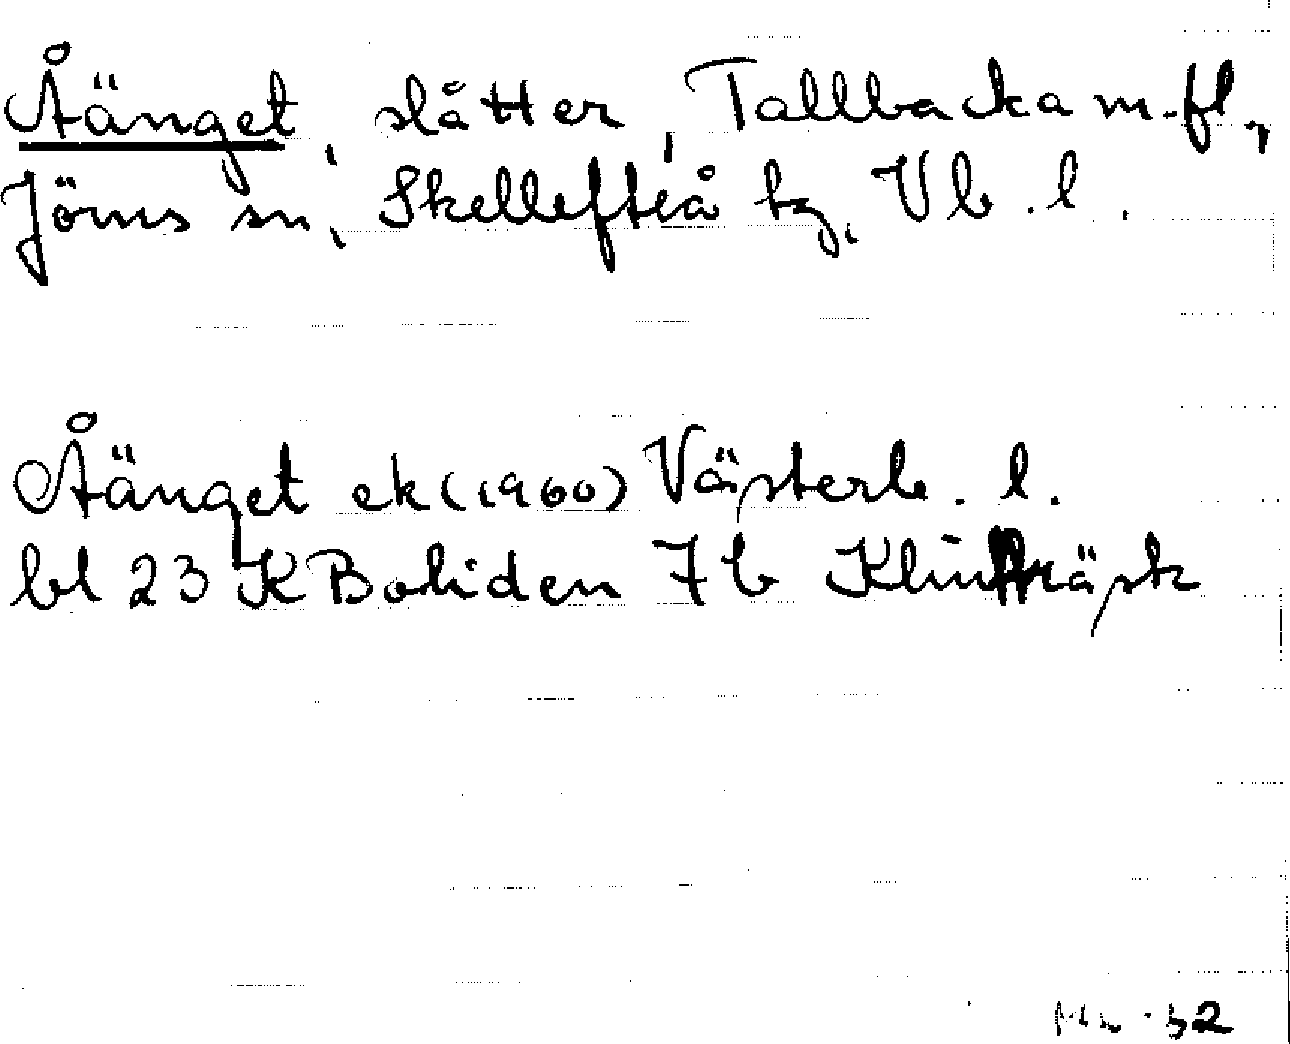 Åänget, slåtter, Tallbacka m.fl.,
Jörns sn, Skellefteå tg, Vb. l.
Åänget ek (1960) Västerb. l.
bl 23 K Boliden 7 b